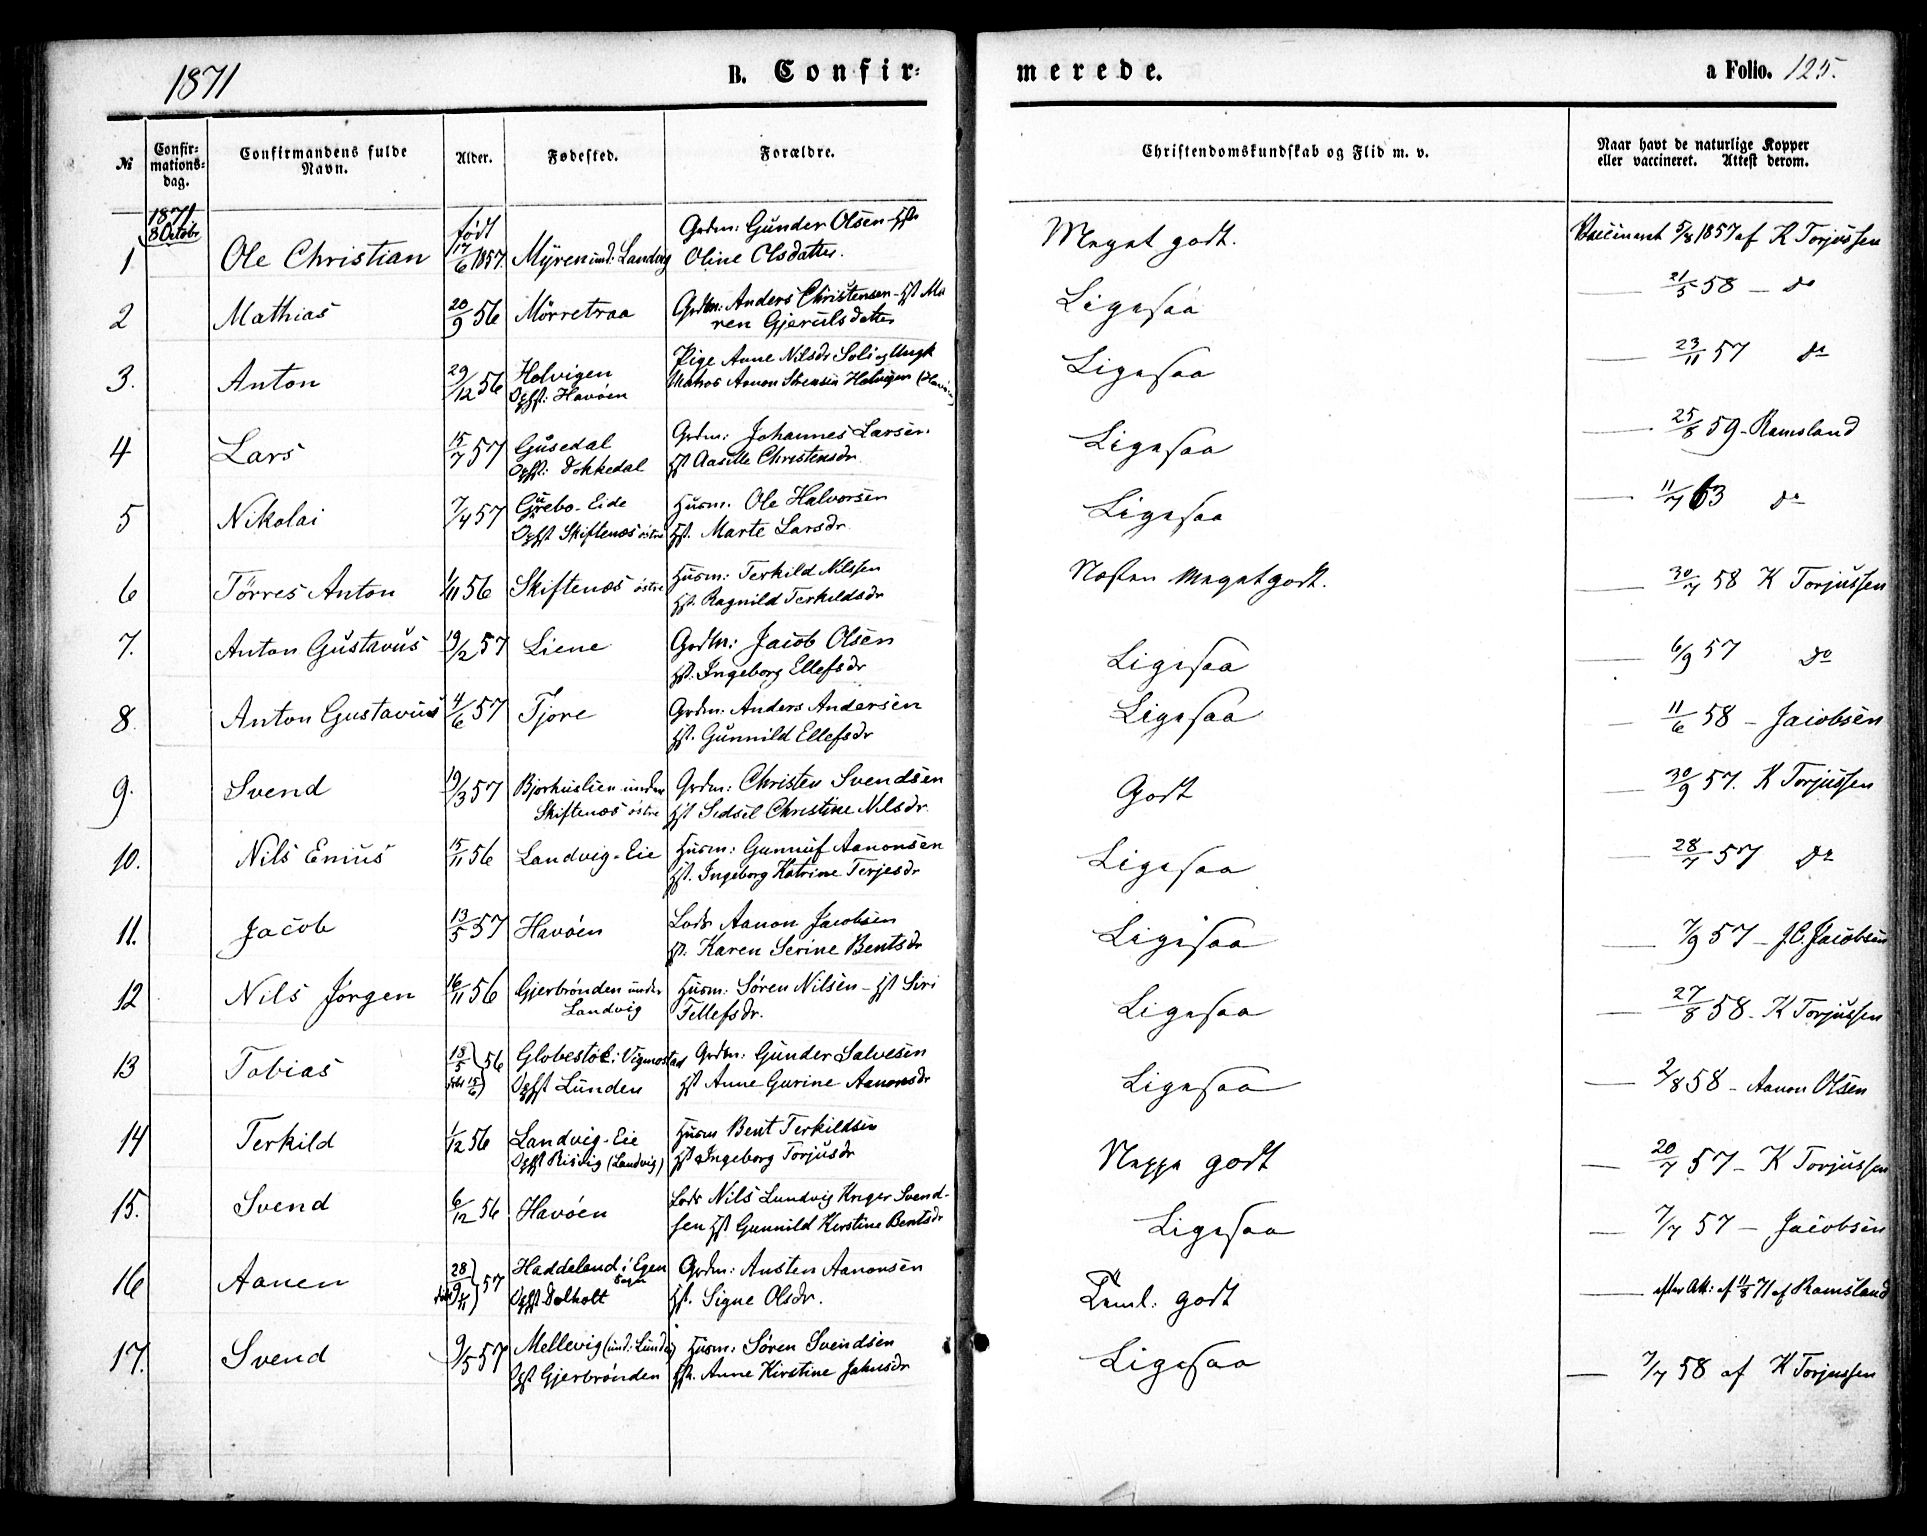 1871
B. Confir-
merede.
a Folio. 125.
№
Confir-
mations-
dag.
Confirmandens fulde
Navn.
Alder.
Fødested.
Forældre.
Christendomskundskab og Flid m. v.
Naar havt de naturlige Kopper
eller vaccineret. Attest derom.
1871
8 Octobr
født
1 Ole Christian 17/6 1857. Myren und: Landvig Grdm: Gunder Olsen - Hst
Oline Olsdatter. Meget godt. Vaccineret 5/8 1857 af K Torjussen
2 Mathias 20/9 56 Mørretraa Grdm: Anders Christensen - Hst Ma
ren Gjerulsdatter Ligesaa — 21/5 58 - do
3. Anton 29/12 56 Holvigen
Opfst: Havøen Pige Anne Nilsdr Soli og Ungk
Matros Aanon Sørensen Holvigen Ligesaa — 23/11 57 do
4 Lars 15/7 57 Gusedal
Opfst: Dokkedal Grdm: Johannes Larsen.
Hst Aaselle Christensdr Ligesaa — 25/8 59 - Ramsland
5 Nikolai 7/4 57 Grebo-Eide
Opfst Skiftenæs østre Husm. Ole Halvorsen
Hst. Marte Larsdr. Ligesaa — 11/7 63 do
6 Tørres Anton 1/11 56 Skiftenæs østre Husm: Terkild Nilssen
Hst. Ragnild Terkildsdr Næsten Meget godt. — 30/7 58 K Torjussen
7. Anton Gustavus 19/2 57 Liene Grdm: Jacob Olsen
Hst. Ingeborg Ellefsdr Ligesaa — 6/9 57 do
8. Anton Gustavus 4/6 57 Tjore Grdm: Anders Andersen
Hst. Gunnild Ellefsdr Ligesaa — 11/6 58 - Jacobsen
9. Svend 19/3 57 Bjorhuslien under
Skiftenæs østre Grdm: Christen Svendsen
Hst Sidsel Christine Nilsdr. Godt — 30/9 57. K Torjussen
10. Nils Enius 15/11 56 Landvig-Eie Husm: Gunnuf Aanonsen
Hst. Ingeborg Katrine Terjesdr Ligesaa — 28/7 57 do
11. Jacob 13/5 57 Havøen Lods Aanon Jacobsen
Hst. Karen Serine Bentsdr Ligesaa — 7/9 57 - J.C. Jacobsen
12 Nils Jørgen 16/11 56 Gjerbrønden under
Landvig Husm: Søren Nilsen - Hst Siri
Tellefsdr. Ligesaa — 27/8 58 - K Torjussen
13 Tobias 18/5 56
døbt 15/6 Globestøl i Vigmostad
Opfst Lunden Grdm: Gunder Salvesen
Hst Anne Gurine Aanonsdr Ligesaa — 2/8 58 - Aanon Olsen
14 Terkild 1/12 56 Landvig-Eie
Opfst Risvig (Landvig) Husm Bent Terkildsen
Hst Ingeborg Torjusdr Neppe godt — 20/7 57 - K Torjussen
15. Svend 6/12 56 Havøen Lods Nils Lundvig Kryger Svend-
sen Hst Gunnild Kirstine Bentsdr Ligesaa — 7/7 57 - Jacobsen
16 Aanen 28/9 57
døbt 9/11 Haddeland i Egen
Sogn
Opfst Dolholt Grdm: Austen Aanonsen
Hst. Signe Olsdr. Teml. godt — efter Att: af 11/8 71 af Ramsland
17. Svend 9/5 57 Mellevig (und: Lunde)
Opfst Gjerbrønden Husm: Søren Svendsen
Hst. Anne Kirstine Jahnsdr Ligesaa — 7/7 58 af K Torjussen